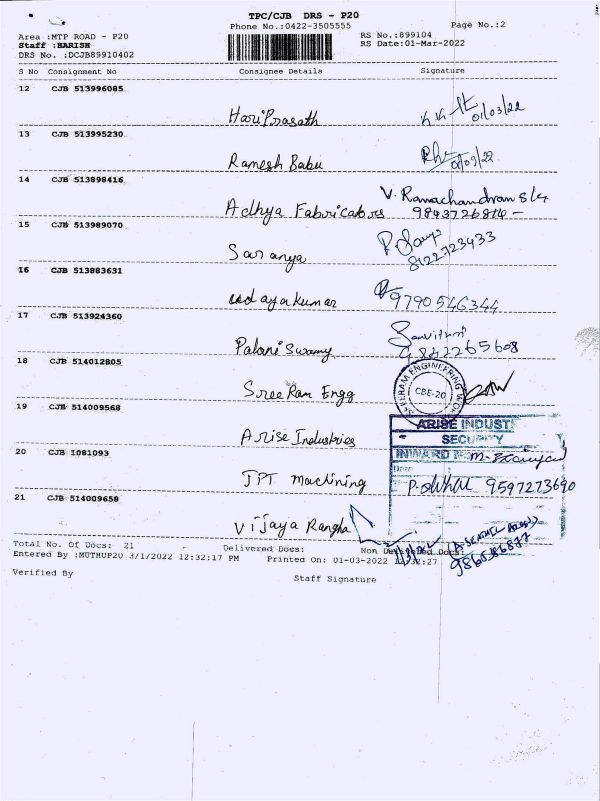 TPC/CJB DRS - P20
Phone No.:0422-3505555
Page No.:2
Area :MTP ROAD - P20
Staff :HARISH
DRS No. :DCJB89910402
RS No.:899104
RS Date:01-Mar-2022
S No Consignment No Consignee Details Signature
12 CJB 513996085
Hari Prasath 01/03/22
13 CJB 513995230
Ramesh Babu
14 CJB 513898416
Adhya Fabricators V. Ramachandran
15 CJB 513989070
Saranya 8122723433
16 CJB 513883631
udayakumar 9790546344
17 CJB 513924360
Palani Swamy
18 CJB 514012805
Sree Ram Engg
SREERAM ENGINEERING WORKS
CBE-20
19 CJB 514009568
Arise Industries
ARISE INDUST
SECURITY
INWARD
Date
20 CJB 1081093
JPT machining 9597273690
21 CJB 514009658
Vijaya Rangha
Total No. Of Docs: 21 Delivered Docs: Non Delivered Docs:
Entered By :MUTHUP20 3/1/2022 12:32:17 PM Printed On: 01-03-2022 12:32:27
9865486877
Verified By
Staff Signature